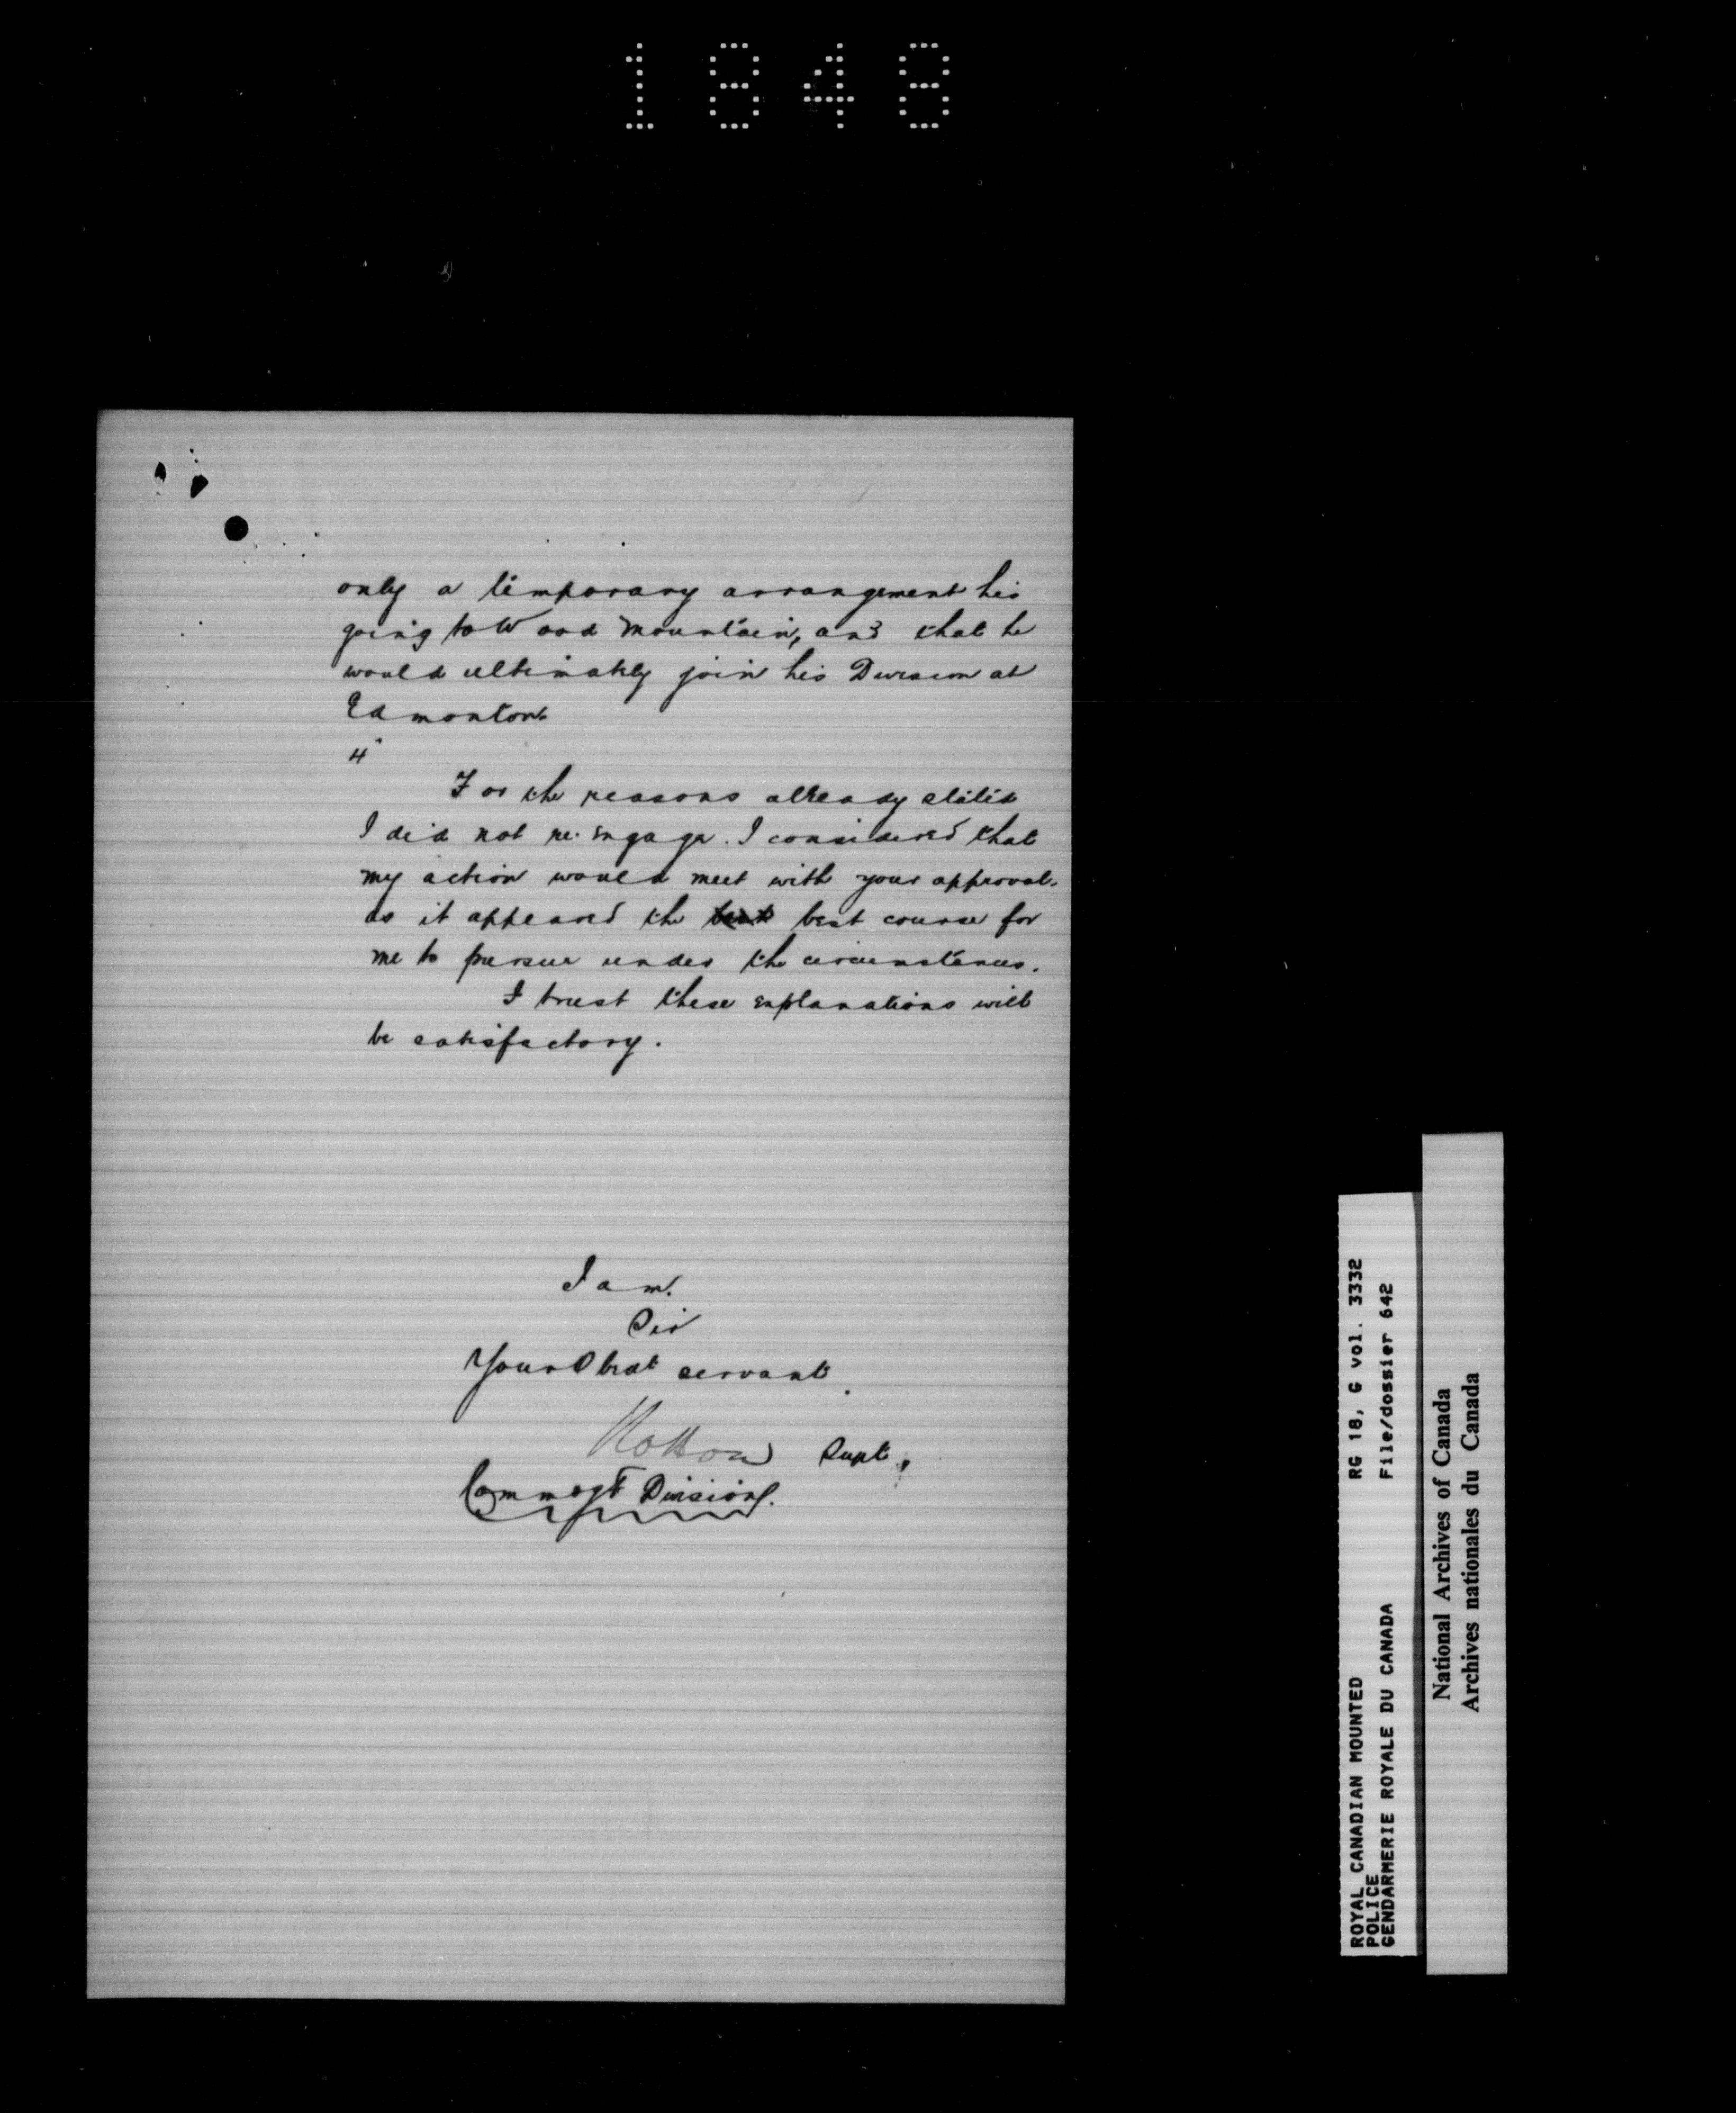 1848
only a temporary arrangement his
going to Wood Mountain, and that he
would ultimately join his Division at
Edmonton.
4
For the reasons already stated
I did not re-engage. I considered that
my action would meet with your approval.
as it appeared the best course for
me to pursue under the circumstances.
I trust these explanations will
be satisfactory.
I am.
Sir
Your Obedt servant.
Supt.
Division.
ROYAL CANADIAN MOUNTED RG 18, G vol. 3332
POLICE
GENDARMERIE ROYALE DU CANADA File/dossier 642
National Archives of Canada
Archives nationales du Canada